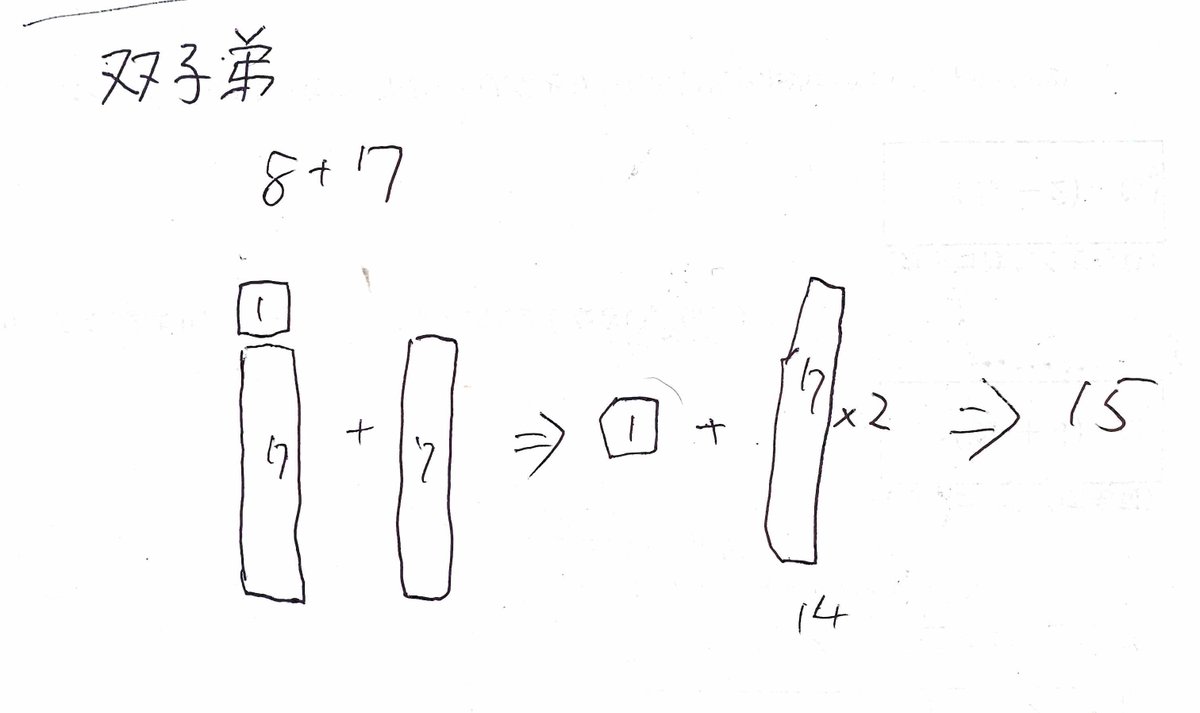 双子弟
8+7
1
7 + 7 ⇒ 1 + 7 ×2 ⇒ 15
14